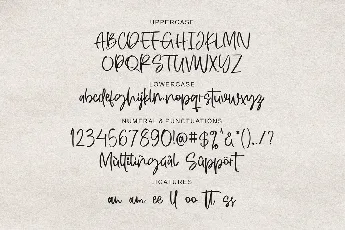 UPPERCASE
ABCDEFGHIJKLMN
OPQRSTUVWXYZ
LOWERCASE
abcdefghijklmnopqrstuvwxyz
NUMERAL & PUNCTUATIONS
1234567890!@#$%^&*()../?
Multilingual Support
LIGATURES
an am ee ll oo tt ss